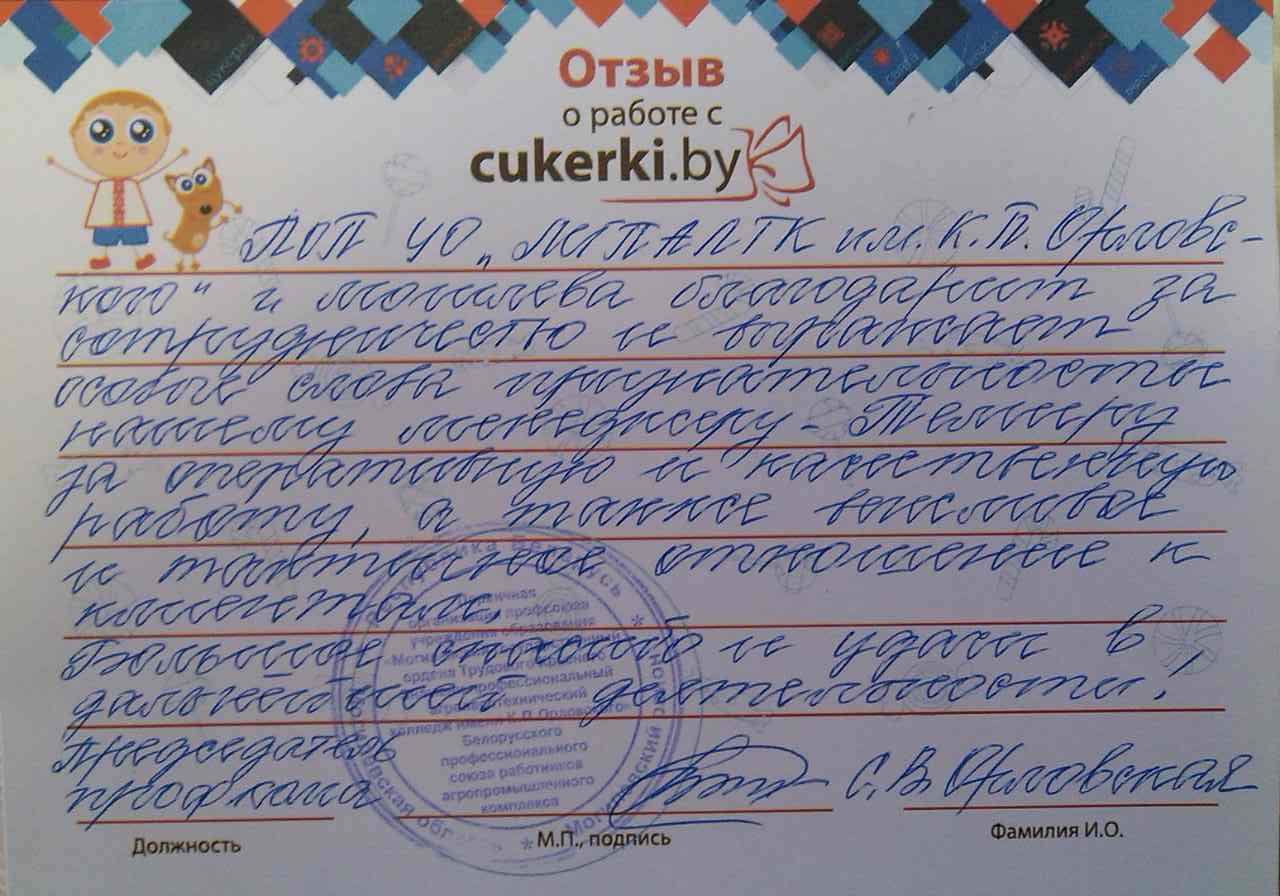 Отзыв
о работе с
cukerki.by
ПОП УО „МГПАЛТК им. К.П. Орловс-
кого" г. Могилева благодарит за
сотрудничество и выражает
особые слова признательности
нашему менеджеру - Тельнику
за оперативную и качественную
работу, а также вежливое
и тактичное отношение к
клиентам.
Большое спасибо и удачи в
дальнейшей деятельности!
Председатель
профкома С.В. Орловская
Должность М.П., подпись Фамилия И.О.
Республика Беларусь
Первичная
организация профсоюза
учреждения образования
ордена Трудового
профессиональный
колледж имени К.П. Орловского»
Белорусского
профессионального
союза работников
агропромышленного
комплекса